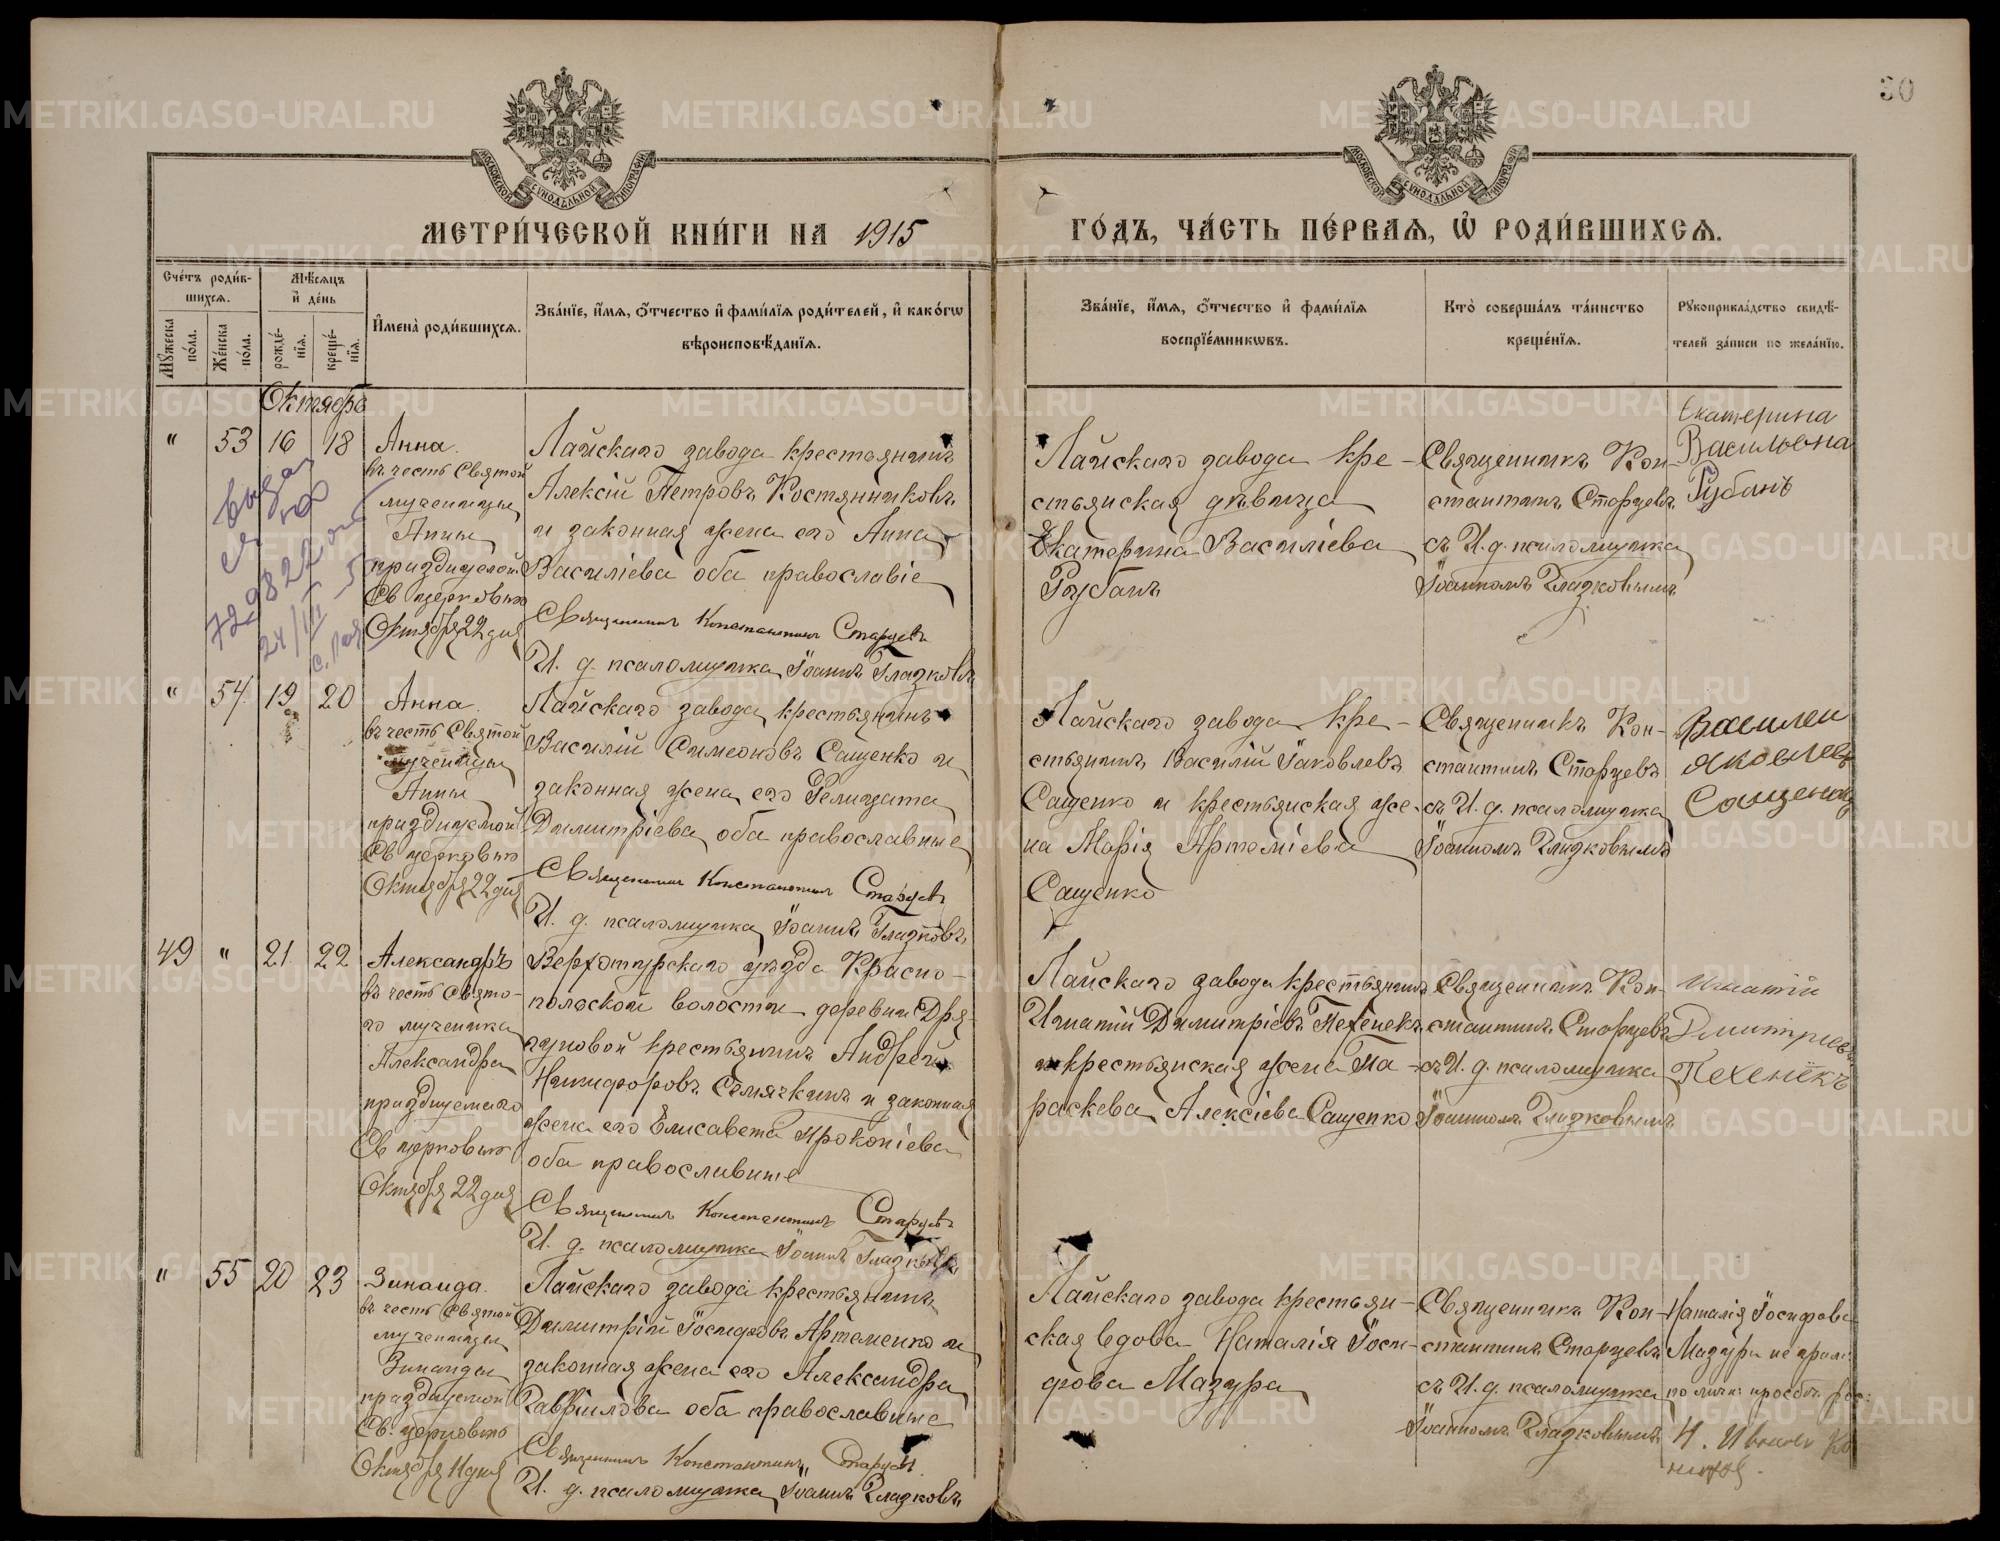 30
МОСКОВСКОЙ СѴНОДАЛЬНОЙ ТИПОГРАФІИ
МОСКОВСКОЙ СѴНОДАЛЬНОЙ ТИПОГРАФІИ
МЕТРИ́ЧЕСКОЙ КНИ́ГИ НА 1915
ГО́ДЪ, ЧА́СТЬ ПЕ́РВАѦ, Ѡ҆ РОДИ́ВШИХСѦ.
Сче́тъ роди́в-
шихсѧ.
Мꙋ́жеска по́ла.
Же́нска по́ла.
Мѣ́сѧцъ
и҆ де́нь
рожде́-
нїѧ.
креще́-
нїѧ.
И҆мена̀ роди́вшихсѧ.
Зва́нїе, и҆́мѧ, ѻ҆́тчество и҆ фами́лїѧ роди́телей, и҆ како́гѡ
вѣроисповѣ́данїѧ.
Зва́нїе, и҆́мѧ, ѻ҆́тчество и҆ фами́лїѧ
воспрїе́мникѡвъ.
Кто̀ соверша́лъ та́инство
креще́нїѧ.
Рꙋкоприкла́дство свидѣ́-
телей за́писи по жела́нїю.
Октябрь
" 53 16 18
Анна
въ честь Святой
мученицы
Анны
празднуемой
Св церковью
Октября 22 дня
Лайскаго завода крестьянинъ
Алексій Петровъ Костянниковъ
и законная жена его Анна
Василіева оба православніе
Священникъ Константинъ Старцевъ
И. д. псаломщика Іоаннъ Гладковъ
Лайскаго завода кре-
стьянская дѣвица
Екатерина Василіева
Рубанъ
Священникъ Кон-
стантинъ Старцевъ
съ И. д. псаломщика
Іоанномъ Гладковымъ
Екатерина
Васильевна
Рубанъ
729822
24/III
" 54 19 20
Анна
въ честь Святой
мученицы
Анны
празднуемой
Св церковью
Октября 22 дня
Лайскаго завода крестьянинъ
Василій Симеоновъ Сащенко и
законная жена его Гелицата
Димитріева оба православные
Священникъ Константинъ Старцевъ
И. д. псаломщика Іоаннъ Гладковъ
Лайскаго завода кре-
стьянинъ Василій Іаковлевъ
Сащенко и крестьянская же-
на Марія Артеміева
Сащенко
Священникъ Кон-
стантинъ Старцевъ
съ И. д. псаломщика
Іоанномъ Гладковымъ
Василей
Яковлевъ
49 " 21 22
Александръ
въ честь Свято-
го мученика
Александра
празднуемаго
Св церковью
Октября 22 дня
Верхотурскаго уѣзда Красно-
польской волости деревни Дря-
гуновой крестьянинъ Андрей
Никифоровъ Семячкинъ и законная
жена его Елисавета Прокопіева
оба православные
Священникъ Константинъ Старцевъ
И. д. псаломщика Іоаннъ Гладковъ
Лайскаго завода крестьянинъ
Игнатій Димитріевъ Пехенекъ
и крестьянская жена Па-
раскева Алексіева Сащенко
Священникъ Кон-
стантинъ Старцевъ
съ И. д. псаломщика
Іоанномъ Гладковымъ
Игнатій
Дмитріевъ
Пехенёкъ
" 55 20 23
Зинаида
въ честь Святой
мученицы
Зинаиды
празднуемой
Св. церковью
Октября 11 дня
Лайскаго завода крестьянинъ
Димитрій Іосифовъ Артеменко и
законная жена его Александра
Гавріилова оба православные
Священникъ Константинъ Старцевъ
И. д. псаломщика Іоаннъ Гладковъ
Лайскаго завода крестьян-
ская вдова Наталія Іоси-
фова Мазура
Священникъ Кон-
стантинъ Старцевъ
съ И. д. псаломщика
Іоанномъ Гладковымъ
Наталія Іосифова
Мазура не грам:
по личн: просьб. рос: